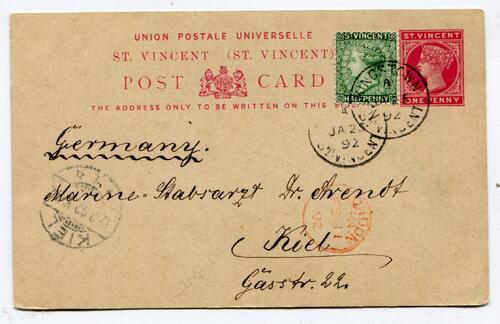 UNION POSTALE UNIVERSELLE
ST. VINCENT (ST. VINCENT)
POST CARD
THE ADDRESS ONLY TO BE WRITTEN ON THIS
ST. VINCENT
HALFPENNY
ST. VINCENT
ONE PENNY
KINGSTOWN
A
92
ST. VINCENT
A
JA 23
92
ST. VINCENT
Germany.
Marine-Stabsarzt Dr. Arendt
Kiel
Gasstr. 22.
KIEL
LONDON
92